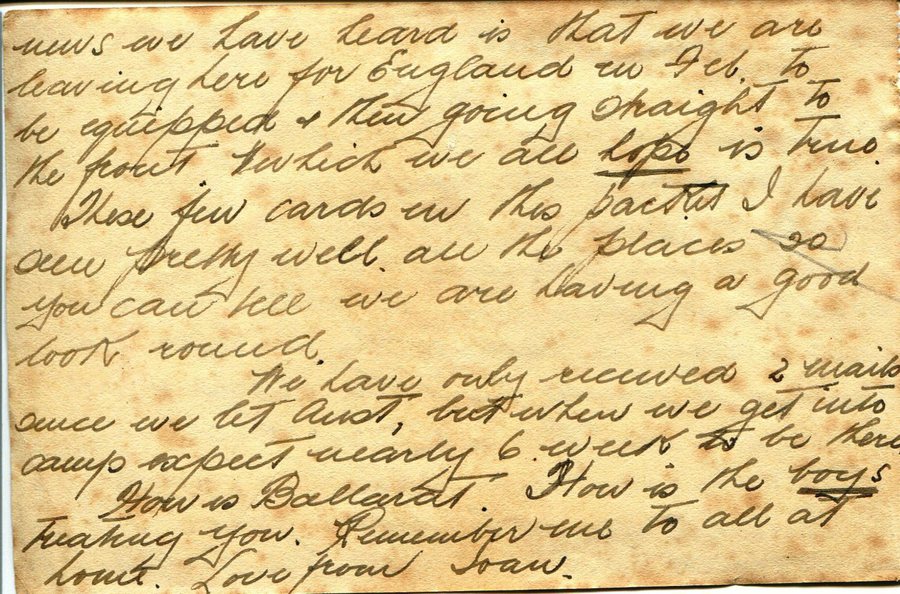 news we have heard is that we are
leaving here for England in Feb. to
be equipped & then going straight to
the front which we all hope is true.
These few cards in this packet I have
seen pretty well all the places so
you can tell we are having a good
look round.
We have only received 2 mails
since we let Aust, but when we get into
camp expect nearly 6 week to be there
How is Ballarat. How is the boys
treating you. Remember me to all at
home. Love from